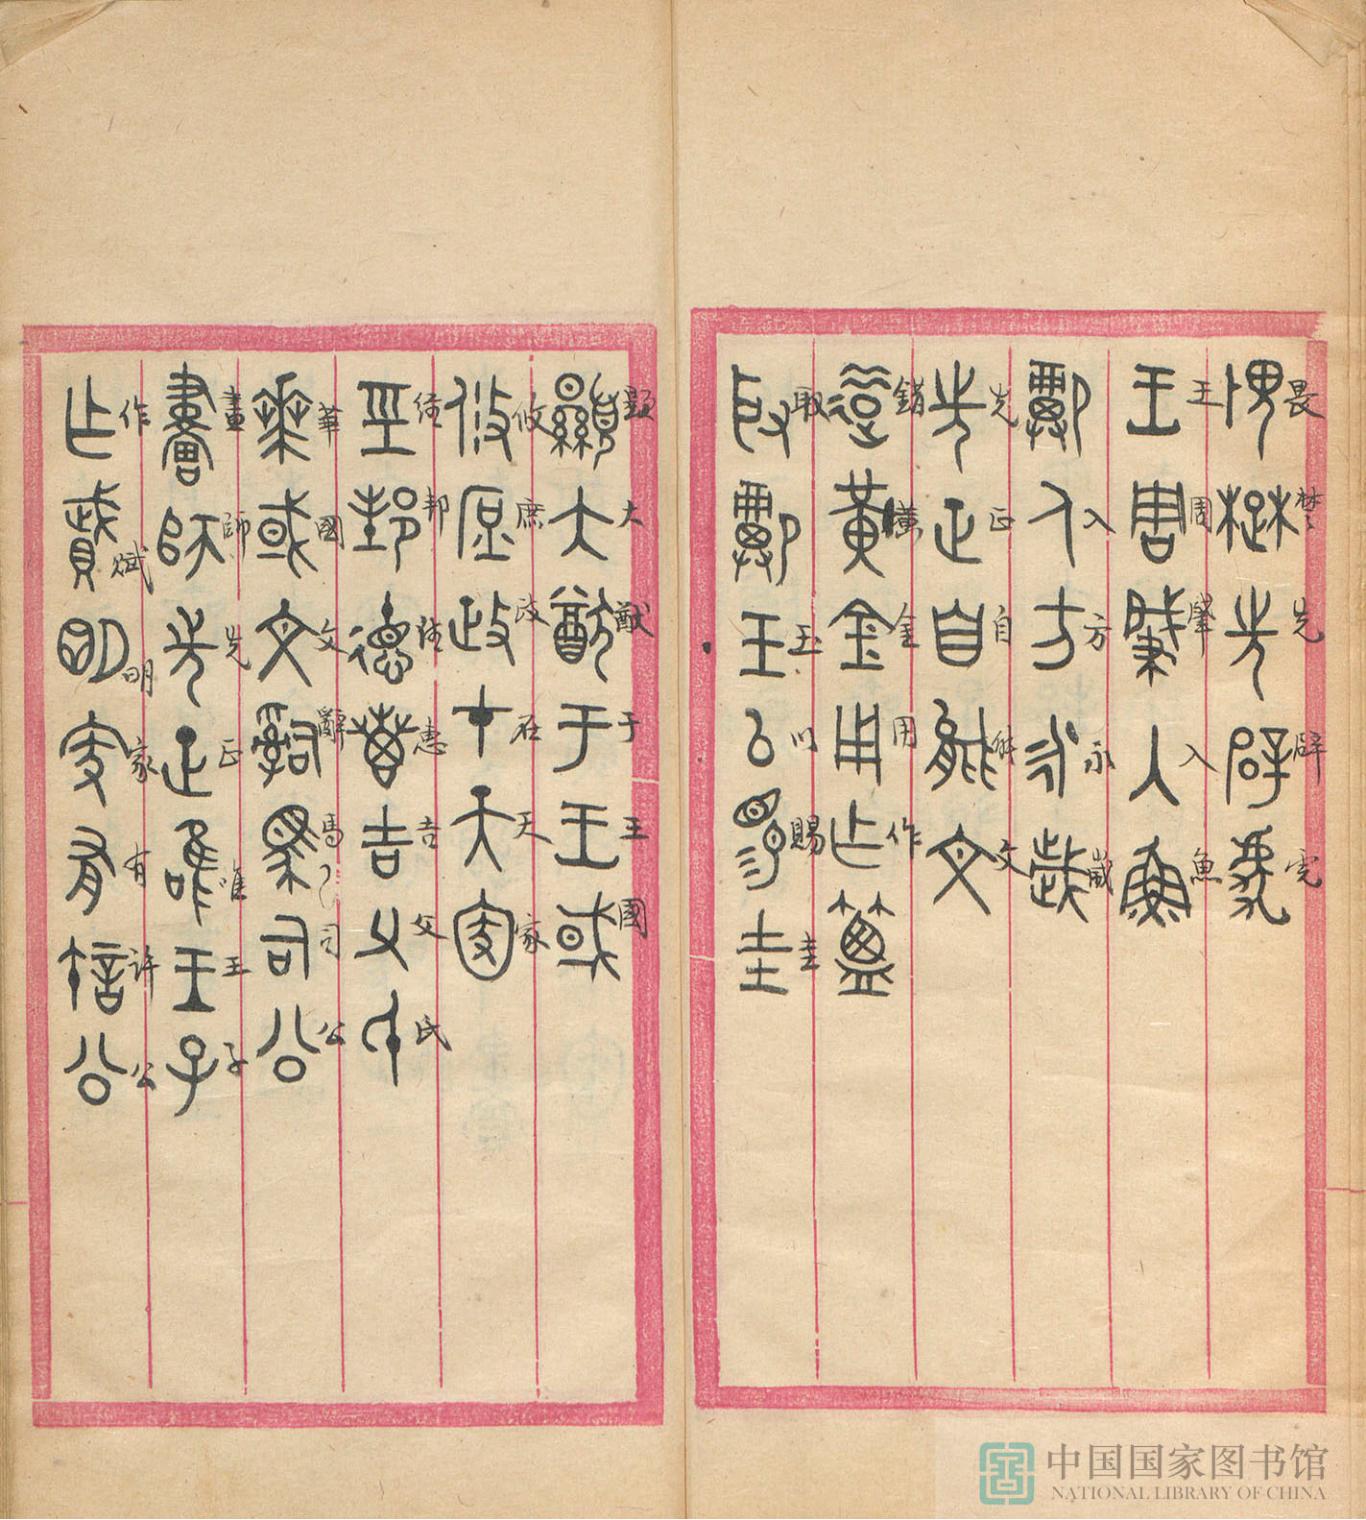 畏楚先辟
王周肇入魚
鄦入方永歲
先正自文
錯黃金用作簠
取鄦王以賜圭
顯大猷于王國
攸庶政在天家
經邦德惠吉父氏
華國文辭司公
畫師先正唯王子
作賦明家有許公
中国国家图书馆
NATIONAL LIBRARY OF CHINA